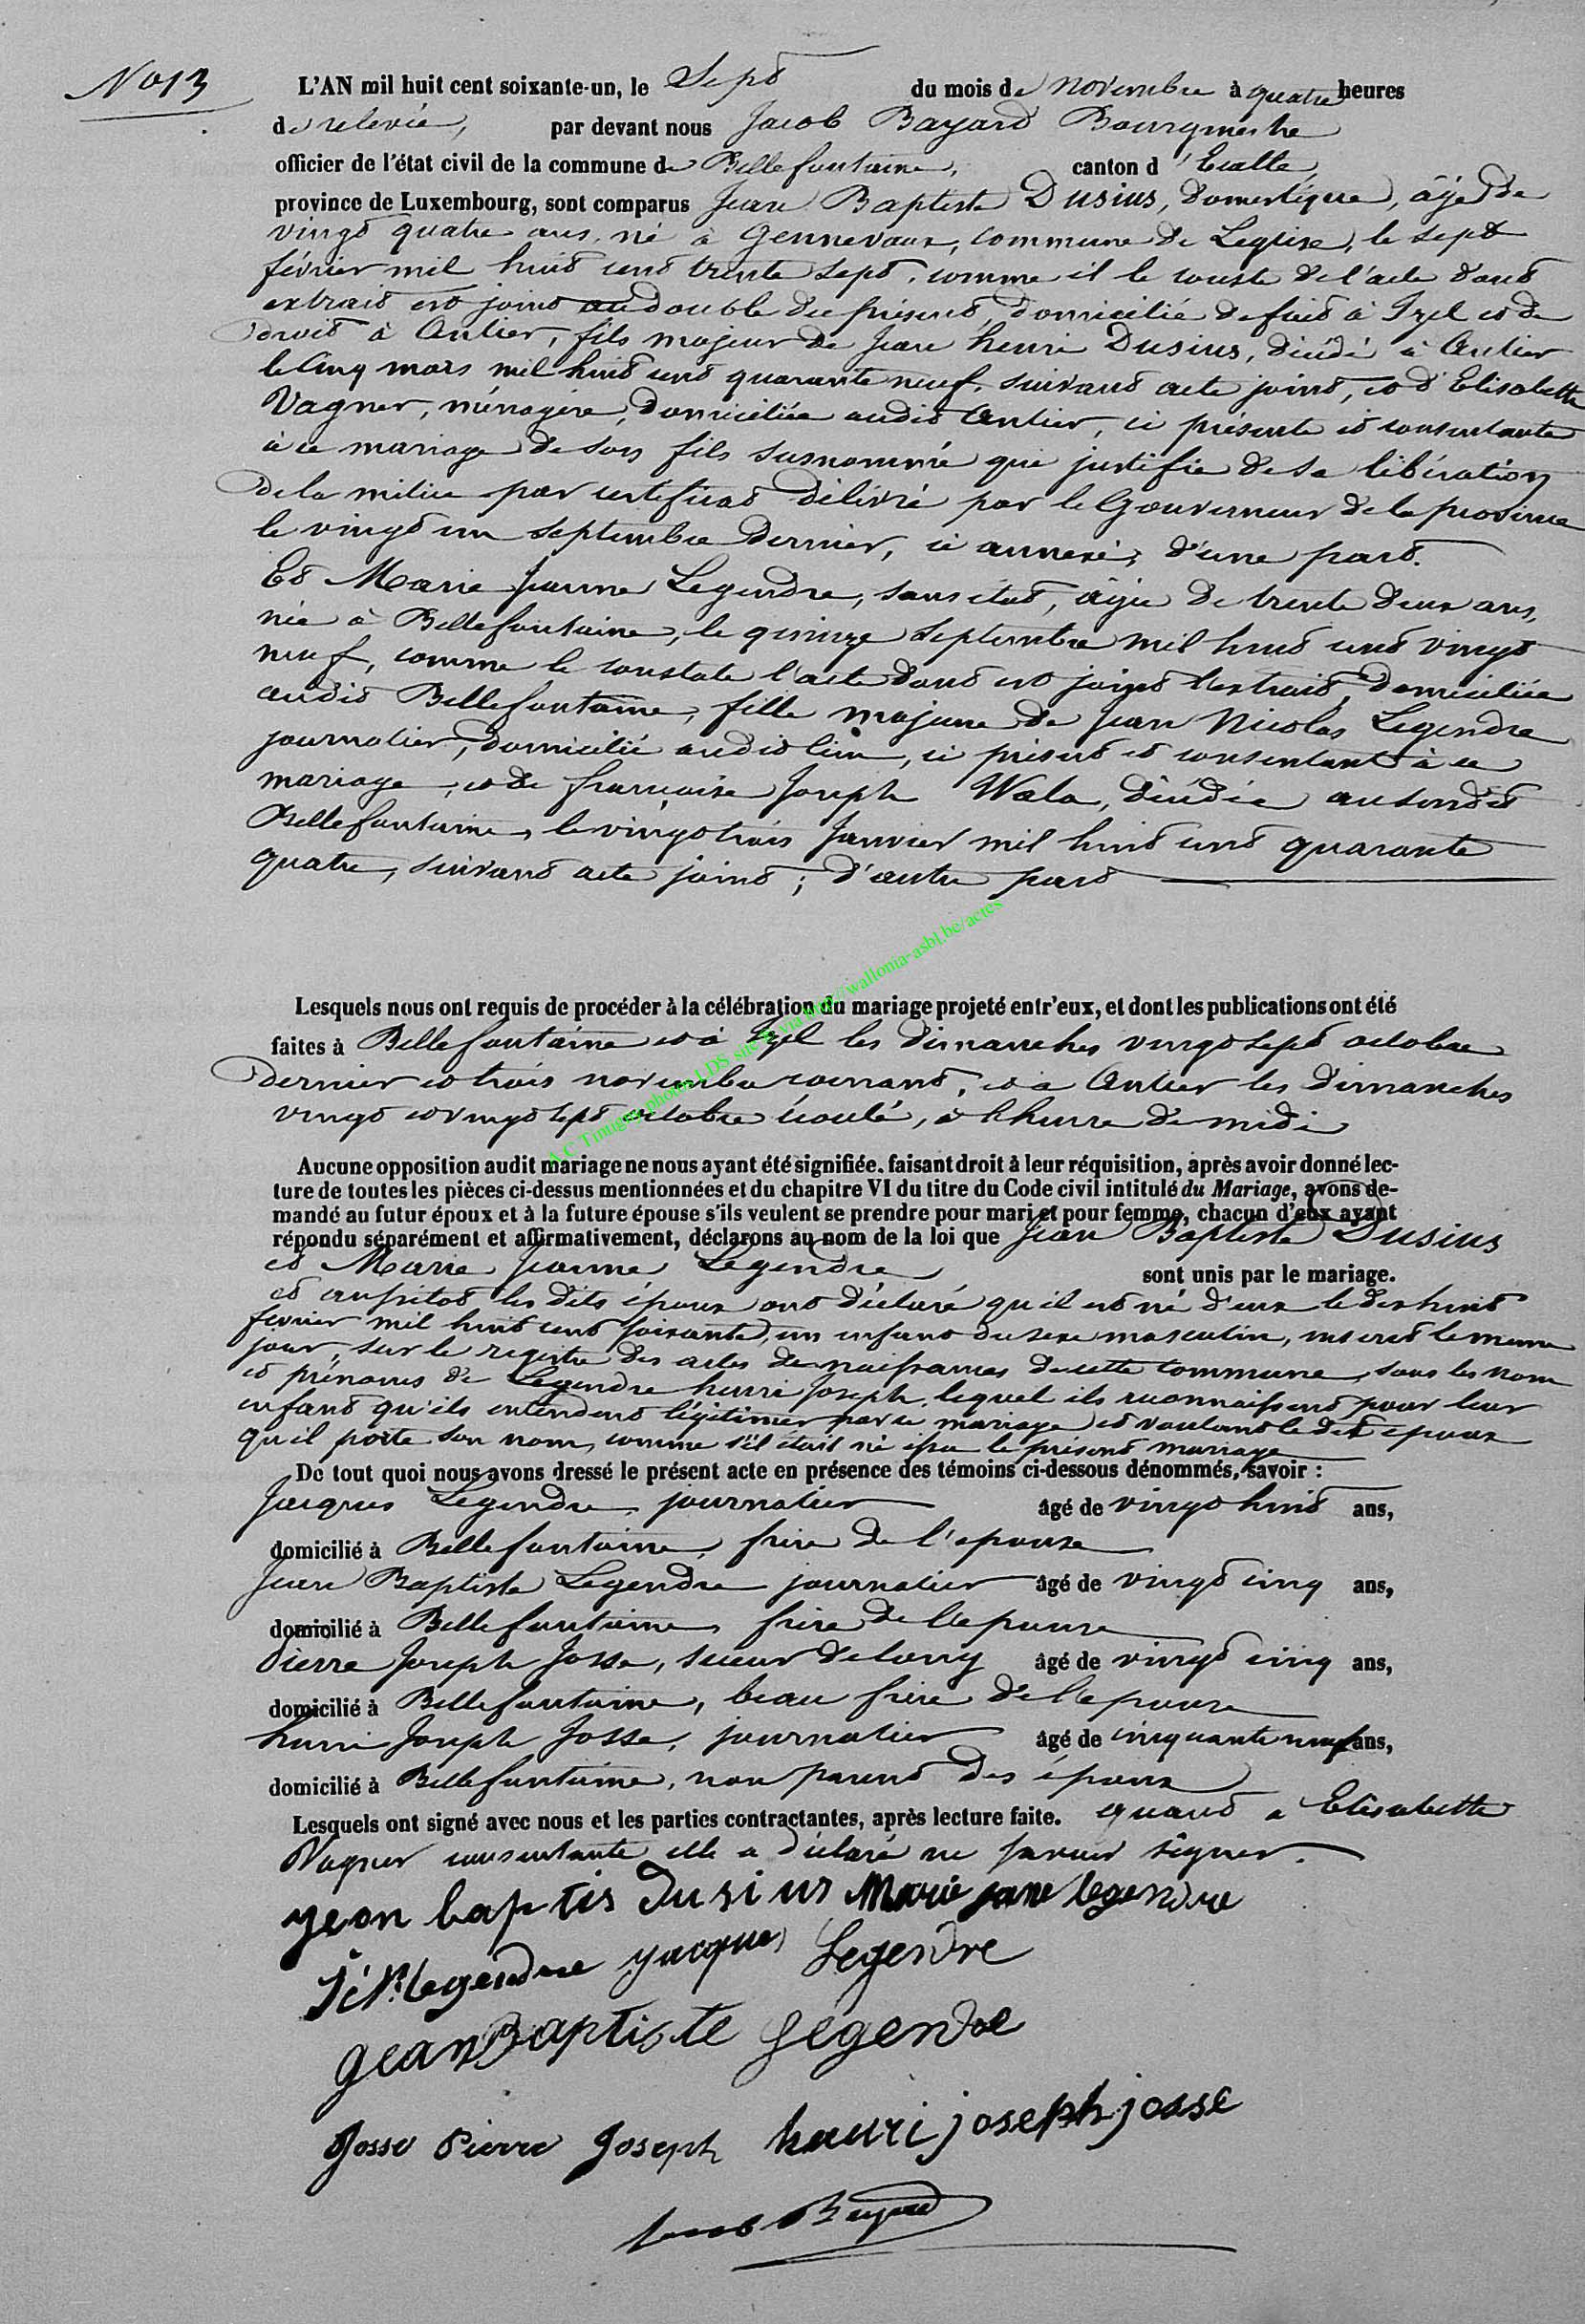 No 13
L'AN mil huit cent soixante-un, le Sept du mois de novembre à quatre heures
de relevée, par devant nous Jacob Bayard Bourgmestre
officier de l'état civil de la commune de Bellefontaine, canton d'Etalle,
province de Luxembourg, sont comparus Jean Baptiste Dusius, domestique, âgé de
vingt quatre ans, né à Gennevaux, commune de Leglise, le sept
février mil huit cent trente sept, comme il le conste de l'acte dont
extrait est joint au double du présent, domicilié de fait à Izel et de
droit à Anlier, fils majeur de Jean henri Dusius, décédé à Anlier
le cinq mars mil huit cent quarante neuf, suivant acte joint, et d'Elisabette
Vagner, ménagère, domiciliée audit Anlier, ci présente et consentante
à ce mariage de son fils susnommé qui justifie de sa libération
de la milice par certificat délivré par le Gouverneur de la province
le vingt un septembre dernier, ci annexé; d'une part.
Et Marie Jeanne Legendre, sans état, âgée de trente deux ans,
née à Bellefontaine, le quinze septembre mil huit cent vingt
neuf, comme le constate l'acte dont est joint l'extrait, domiciliée
audit Bellefontaine, fille majeure de Jean Nicolas Legendre
journalier, domicilié audit lieu, ci présent et consentant à ce
mariage, et de françoise Joseph Wala, décédée au susdit
Bellefontaine, le vingt trois Janvier mil huit cent quarante
quatre, suivant acte joint; d'autre part
Lesquels nous ont requis de procéder à la célébration du mariage projeté entr'eux, et dont les publications ont été
faites à Bellefontaine et à Izel les dimanches vingt sept octobre
dernier et trois novembre courant, et à Anlier les dimanches
vingt et vingt sept octobre écoulé, à l'heure de midi
A.C Tintigny photo LDS site via http://wallonia-asbl.be/actes
Aucune opposition audit mariage ne nous ayant été signifiée. faisant droit à leur réquisition, après avoir donné lec-
ture de toutes les pièces ci-dessus mentionnées et du chapitre VI du titre du Code civil intitulé du Mariage, avons de-
mandé au futur époux et à la future épouse s'ils veulent se prendre pour mari et pour femme, chacun d'eux ayant
répondu séparément et affirmativement, déclarons au nom de la loi que Jean Baptiste Dusius
et Marie Jeanne Legendre sont unis par le mariage.
et aussitot les dits époux ont déclaré qu'il est né d'eux le dix huit
fevrier mil huit cent soixante, un enfant du sexe masculin, inscrit le meme
jour sur le registre des actes de naissances de cette commune, sous les nom
et prénoms de Legendre henri Joseph, lequel ils reconnaissent pour leur
enfant qu'ils entendent légitimer par ce mariage et voulant le dit epoux
qu'il porte son nom, comme s'il était né le présent mariage
De tout quoi nous avons dressé le présent acte en présence des témoins ci-dessous dénommés, savoir :
Jacques Legendre, journalier âgé de vingt huit ans,
domicilié à Bellefontaine, frère de l'epouse
Jean Baptiste Legendre journalier âgé de vingt cinq ans,
domicilié à Bellefontaine, frère de l'epouse
Pierre Joseph Josse, scieur de long âgé de vingt cinq ans,
domicilié à Bellefontaine, beau frère de l'epouse
henri Joseph Josse, journalier âgé de cinquante neuf ans,
domicilié à Bellefontaine, non parent des époux
Lesquels ont signé avec nous et les parties contractantes, après lecture faite. quant a Elisabette
Vagner consentante elle a déclaré ne savoir signer.
jean baptis dusius Marie jane legendre
J.N. legendre jacques Legendre
jean Baptiste Legendre
Josse Pierre Joseph henri joseph josse
Jacob Bayard